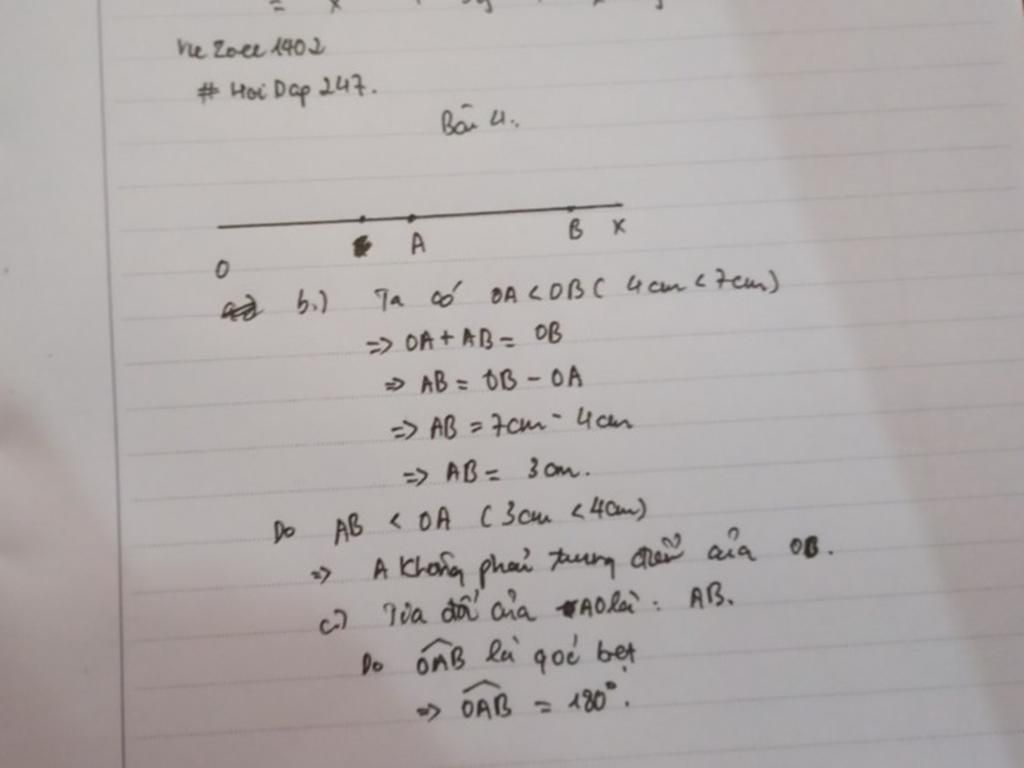 # Hoi Dap 247.
Bài 4.
A B x
O
b.) Ta có OA < OB ( 4cm < 7cm)
=> OA + AB = OB
=> AB = OB - OA
=> AB = 7cm - 4cm
=> AB = 3cm.
Do AB < OA ( 3cm < 4cm)
=> A không phải trung điểm của OB.
c.) Tia đối của AO là : AB.
Do \widehat{OAB} là góc bẹt
=> \widehat{OAB} = 180°.